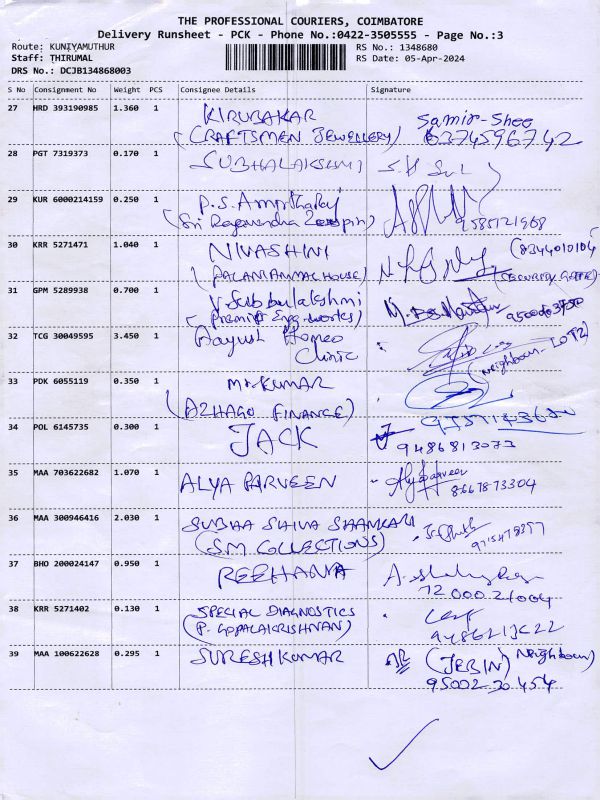 THE PROFESSIONAL COURIERS, COIMBATORE
Delivery Runsheet - PCK - Phone No.:0422-3505555 - Page No.:3
Route: KUNIYAMUTHUR
Staff: THIRUMAL
DRS No.: DCJB134868003
RS No.: 1348680
RS Date: 05-Apr-2024
S No Consignment No Weight PCS Consignee Details Signature
27 HRD 393190985 1.360 1 KIRUBAKAR Samir-Shee
(CRAFTSMEN JEWELLERY) 6374596742
28 PGT 7319373 0.170 1 SUBHALAKSHMI
29 KUR 6000214159 0.250 1 P.S.Amirtharaj
(Sri Ragavendra 9585121968
30 KRR 5271471 1.040 1 NIVASHINI (8344010104
(PALANIAMMAL HOUSE) (SECURITY GATE)
31 GPM 5289938 0.700 1 V.Subbulakshmi
(Premier Eng. works)
32 TCG 30049595 3.450 1 Aayush Homeo
Clinic Neighbour-
33 PDK 6055119 0.350 1 Mr.KUMAR
(AZHAGO FINANCE)
34 POL 6145735 0.300 1 JACK
9486813073
35 MAA 703622682 1.070 1 ALYA PARVEEN Alya Parveen
8667873304
36 MAA 300946416 2.030 1 SUBHA SHIVA SHANKARI
(S.M. COLLECTIONS)
37 BHO 200024147 0.950 1 REEHANA
38 KRR 5271402 0.130 1 SPECIAL DIAGNOSTICS
(P. GOPALAKRISHNAN)
39 MAA 100622628 0.295 1 SURESH KUMAR (JEBIN) Neighbour)
95002-30454